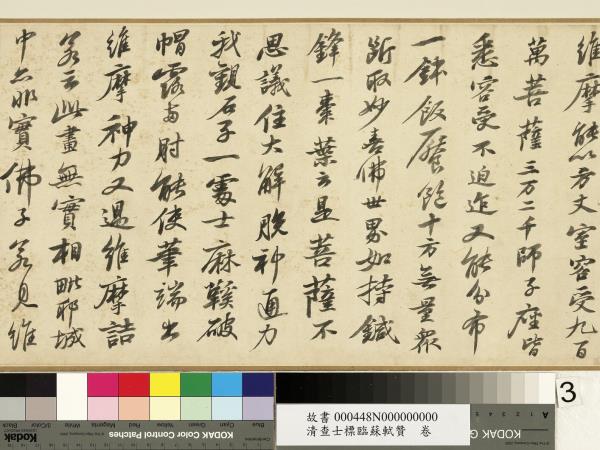 維摩能以方丈室容受九百
萬菩薩三万二千師子座皆
悉容受不迫迮又能分布
一鉢飯饜飽十方無量眾
斷取妙喜佛世界如持鍼
鋒一棗葉云是菩薩不
思議住大解脫神通力
我觀石子一處士麻鞵破
帽露兩肘能使筆端出
維摩神力又過維摩詰
若云此畫無實相毗耶城
中亦非實佛子若見維
3
故書 000448N000000000
清查士標臨蘇軾贊 卷
KODAK Color Control Patches
Kodak
Blue
Cyan
Green
Yellow
Red
Magenta
White
3/Color
Black
KODAK G
A 1 2 3 4 5